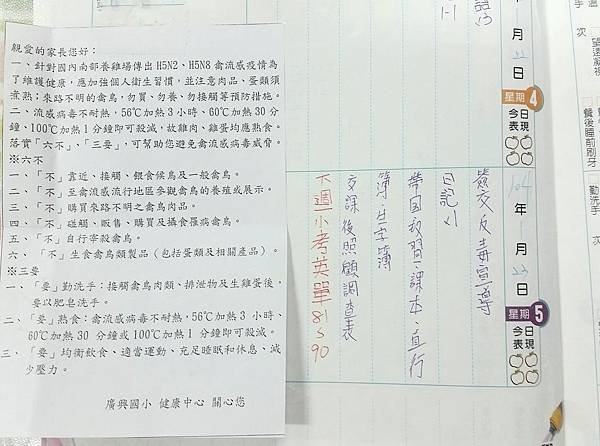 親愛的家長您好：
一、針對國內南部養雞場傳出 H5N2、H5N8 禽流感疫情為
了維護健康，應加強個人衛生習慣，並注意肉品、蛋類須
煮熟；來路不明的禽鳥，勿買、勿養、勿接觸等預防措施。
二、流感病毒不耐熱，56℃加熱 3 小時、60℃加熱 30 分
鐘、100℃加熱 1 分鐘即可殺滅，故雞肉、雞蛋均應熟食。
落實「六不」、「三要」，可幫助您避免禽流感病毒威脅。
※六不
一、「不」靠近、接觸、餵食候鳥及一般禽鳥。
二、「不」至禽流感流行地區參觀禽鳥的養殖或展示。
三、「不」購買來路不明之禽鳥肉品。
四、「不」碰觸、販售、購買及攝食罹病禽鳥。
五、「不」自行宰殺禽鳥。
六、「不」生食禽鳥類製品（包括蛋類及相關產品）。
※三要
一、「要」勤洗手：接觸禽鳥肉類、排泄物及生雞蛋後，
要以肥皂洗手。
二、「要」熟食：禽流感病毒不耐熱，56℃加熱 3 小時、
60℃加熱 30 分鐘或100℃加熱 1 分鐘即可殺滅。
三、「要」均衡飲食、適當運動、充足睡眠和休息、減
少壓力。
廣興國小 健康中心 關心您
1-1
月 22 日
星期 4
今日
表現
104 年 月 23 日
星期 5
今日
表現
簽交反毒宣導
日記×1
帶國教習、課本、直行
簿、生字簿
交課後照顧調查表
下週一小考英單 81 S 90
手 次
望遠凝視
餐後睡前刷牙
勤洗手
次